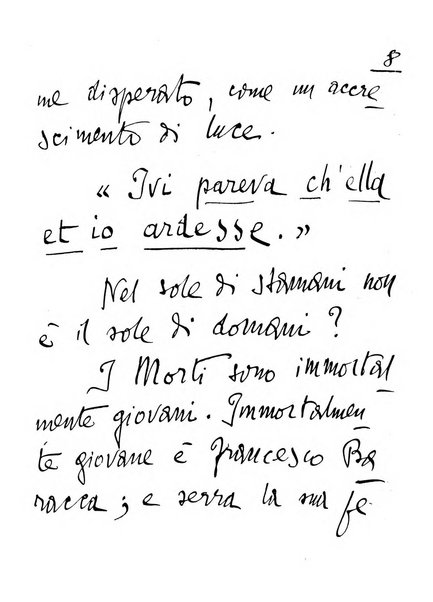 8
me disperato, come un accre
scimento di luce.
« Ivi pareva ch'ella
et io ardesse.»
Nel sole di stamani non
è il sole di domani?
I Morti sono immortal
mente giovani. Immortalmen
te giovane è Francesco Ba
racca; e serra la sua fe